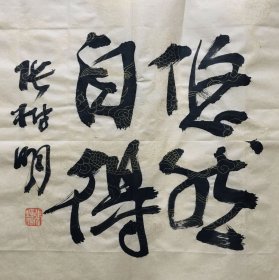 悠然
自得
张桂明